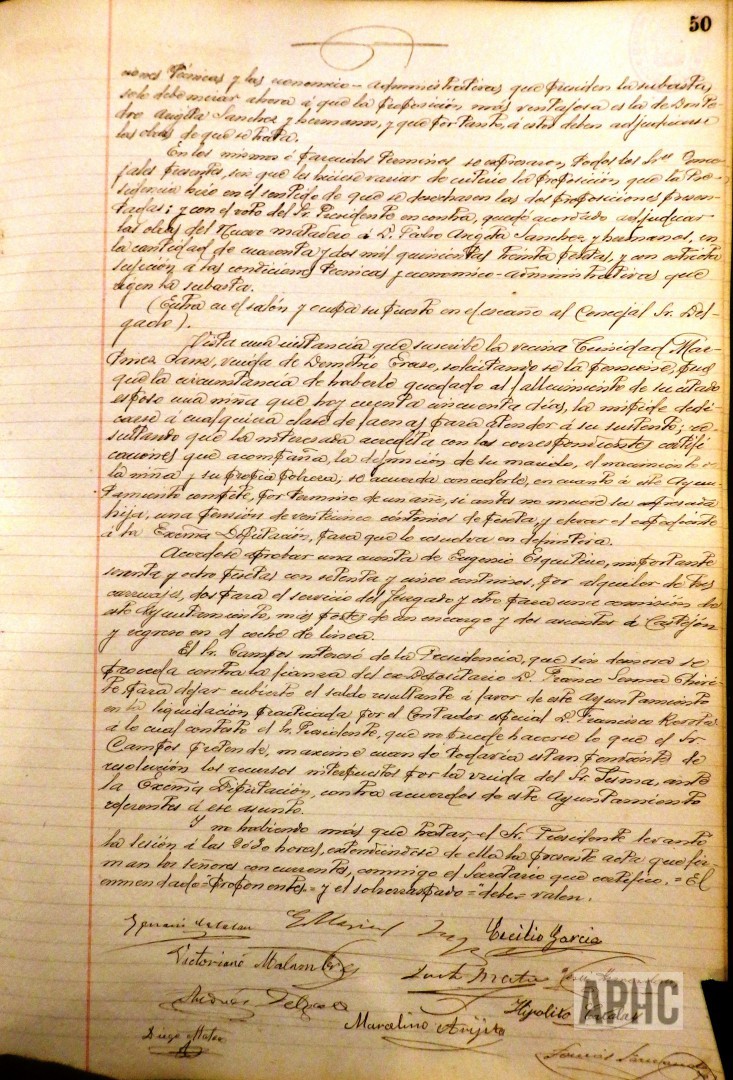 50
ciones técnicas y las economico-administrativas que presiden la subasta,
solo debe mirar ahora á que la proposición más ventajosa es la de Don Pe-
dro Angita Sanchez y hermanos, y que por tanto, á estos deben adjudicarse
las obras de que se trata.
En los mismos ó parecidos términos se expresaron todos los Sres Conce-
jales presentes, sin que les hiciese variar de criterio la proposición que la Pre-
sidencia hizo en el sentido de que se desechasen las dos proposiciones presen-
tadas; y con el voto del Sr. Presidente en contra, quedó acordado adjudicar
las obras del Nuevo matadero á D. Pedro Angita Sanchez y hermanos, en
la cantidad de cuarenta y dos mil quinientas treinta pesetas, y con estricta
sujeción á las condiciones técnicas y economico-administrativas que
rigen la subasta.
(Entra en el salón y ocupa su puesto en el escaño el Concejal Sr. Del-
gado).
Vista una instancia que suscribe la vecina Trinidad Mar-
tinez Sanz, viuda de Demetrio Eraso, solicitando se la pensione, pues
que la circunstancia de haberle quedado al fallecimiento de su citado
esposo una niña que hoy cuenta cincuenta días, la impide dedi-
carse á cualquiera clase de faenas para atender á su sustento; re-
sultando que la interesada acredita con las correspondientes certifi-
caciones que acompaña, la defunción de su marido, el nacimiento de
la niña y su propia pobreza, se acuerda concederle, en cuanto á este Ayun-
tamiento compete, por termino de un año, si antes no muere su expresada
hija, una pensión de veinticinco céntimos de peseta, y elevar el expediente
á la Excma Diputación, para que lo resuelva en definitiva.
Acordóse aprobar una cuenta de Eugenio Esquibiro, importante
sesenta y ocho pesetas con setenta y cinco centimos, por alquiler de tres
carruajes, dos para el servicio del Juzgado y otro para una comisión de
este Ayuntamiento, más portes de un encargo y dos asientos á Castejón
y regreso en el coche de linea.
El Sr. Campos interesó de la Presidencia, que sin demora se
proceda contra la fianza del ex Depositario D. Franco Serma
para dejar cubierto el saldo resultante á favor de este Ayuntamiento
en la liquidación practicada por el Contador especial D. Francisco
á lo cual contestó el Sr. Presidente, que no puede hacerse lo que el Sr.
Campos pretende, maxime cuando todavía estan pendientes de
resolución los recursos interpuestos por la viuda del Sr. Serma, ante
la Excma Diputación, contra acuerdos de este Ayuntamiento
referentes á ese asunto.
Y no habiendo más que tratar, el Sr. Presidente levantó
la sesión á las 20'30 horas, extendiéndose de ella la presente acta que fir-
man los señores concurrentes, conmigo el Secretario que certifico. = El
enmendado = proponentes = y el sobrerraspado = debe = valen.
Cecilio Garcia
Victoriano Malumbres
Mata
Andrés Delgado
Hipolito
Marcelino Angita
Diego Mateo
APHC